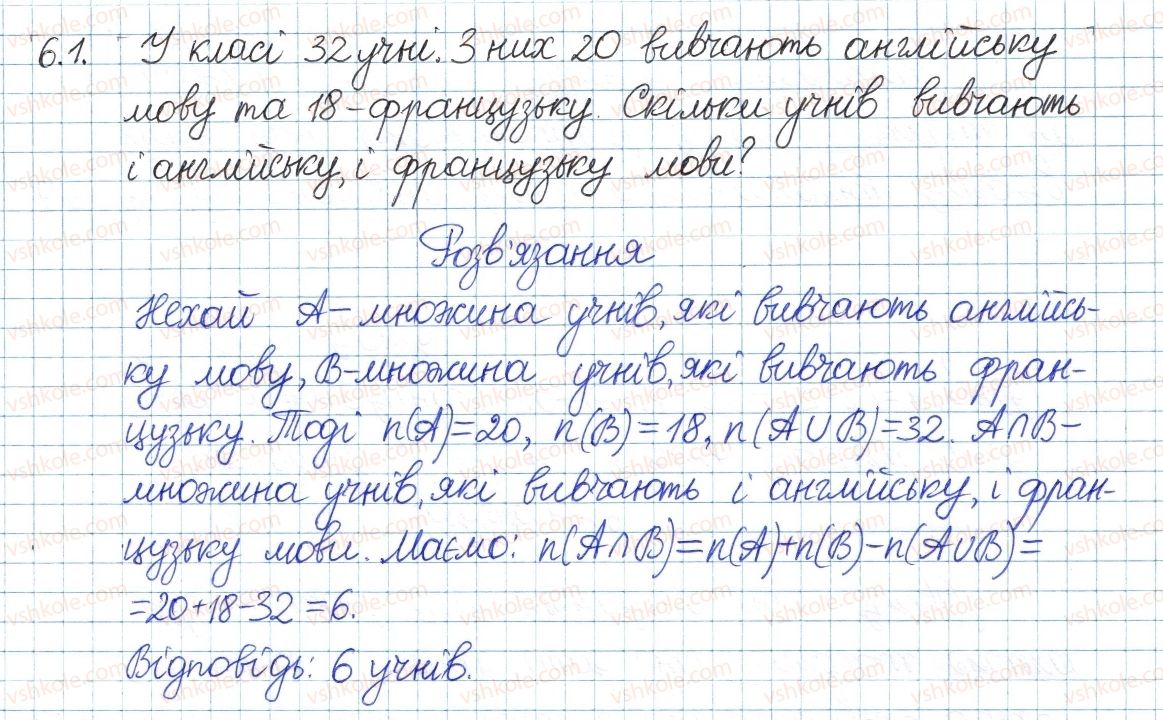 6.1. У класі 32 учні. З них 20 вивчають англійську
мову та 18 - французьку. Скільки учнів вивчають
і англійську, і французьку мови?
Розв'язання
Нехай A - множина учнів, які вивчають англійсь-
ку мову, B - множина учнів, які вивчають фран-
цузьку. Тоді n(A)=20, n(B)=18, n(A∪B)=32. A∩B -
множина учнів, які вивчають і англійську, і фран-
цузьку мови. Маємо: n(A∩B)=n(A)+n(B)-n(A∪B)=
=20+18-32=6.
Відповідь: 6 учнів.
vshkole.com